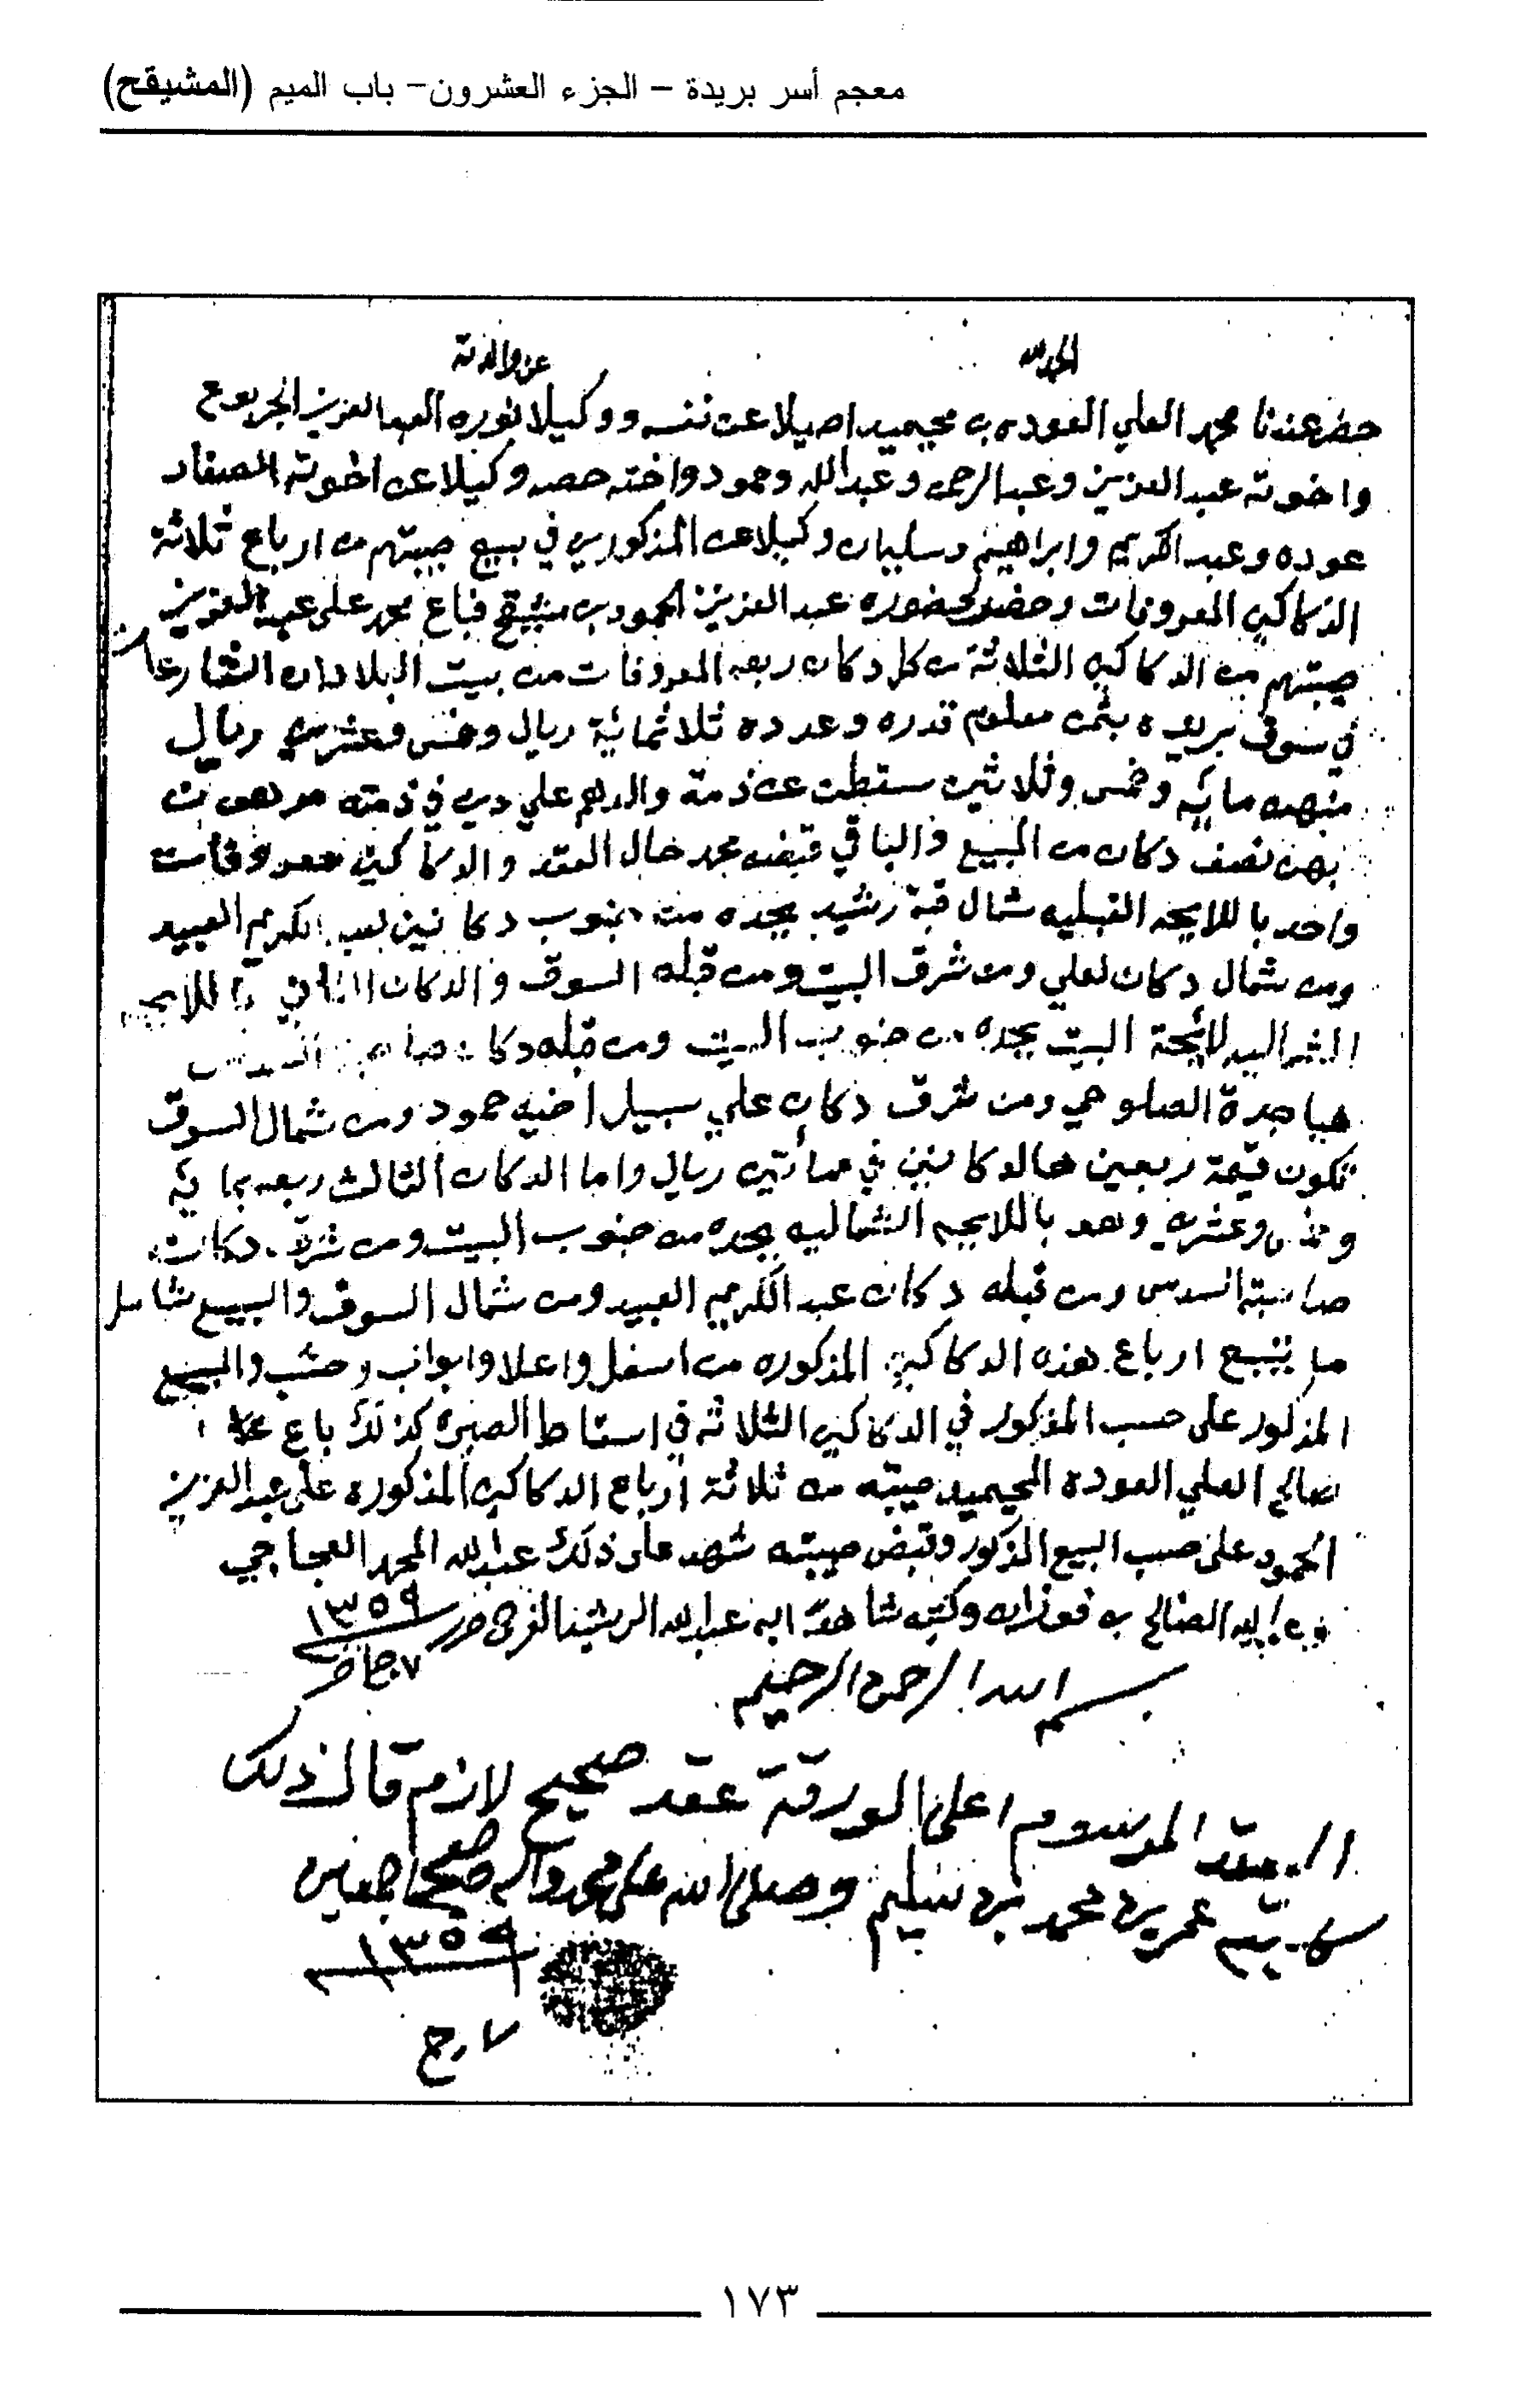 معجم أسر بريدة – الجزء العشرون– باب الميم (المشيقح)
الحمد لله
عن والدته
حضر عندنا محمد العلي العوده بن محيميد اصيلا عن نفسه ووكيلا نوره العبدالعزيز الجربوع
واخوته عبد العزيز وعبد الرحمن وعبدالله وحمود واخته حصه وكيلا عن اخوته الصغار
عوده وعبد الكريم وابراهيم وسليمان وكيلا عن المذكورين في بيع صيبتهم من ارباع ثلاثة
الدكاكين المعروفات وحضر لحضوره عبد العزيز الحمود بن مشيقح فباع محمد على عبد العزيز
صيبتهم من الدكاكين الثلاثة من كل دكان ربعه المعروفات من بيت
في سوق بريده بثمن معلوم قدره وعدده ثلاثمائة ريال وخمس وعشرين ريال
منهن مايه وخمس وثلاثين سقطت عن ذمة والدهم علي دين في ذمته مرهون
بهن نصف دكان من المبيع والباقي قبضه محمد حال العقد والدكاكين معروفات
واحد باللايحه القبليه شمال قبة رشيد يحده من جنوب دكانين لعبد الكريم العبيد
ومن شمال دكان لعلي ومن شرق البيت ومن قبله السوق والدكان الثاني باللايحه
الشماليه لايحة البيت يحده من جنوب البيت ومن قبله دكان
هيا جدة الصلوحي ومن شرق دكان علي سبيل اخيه حمود ومن شمال السوق
تكون قيمة ربعين هالدكانين في مأتين ريال واما الدكان الثالث ربعه بمايه
وخمس وعشرين وهو باللايحه الشماليه يحده من جنوب البيت ومن شرق دكان
ومن قبله دكان عبد الكريم العبيد ومن شمال السوق والبيع شامل
ما يتبع ارباع هذه الدكاكين المذكوره من اسفل واعلا وابواب وخشب والبيع
المذكور على حسب المذكور في الدكاكين الثلاثه في اسقاط الصبره كذلك باع
صالح العلي العوده المحيميد صيبته من ثلاثة ارباع الدكاكين المذكوره على عبد العزيز
الحمود على حسب البيع المذكور وقبض صيبته شهد على ذلك عبدالله المحمد العجاجي
الصالح بن فوزان وكتبه شاهدا به عبدالله الرشيد الفرج حرر ١٣٥٩
٧ جا خر
بسم الله الرحمن الرحيم
العقد المرسوم اعلى الورقة عقد صحيح لازم قال ذلك
كاتبه عمر بن محمد بن سليم وصلى الله على محمد واله وصحبه اجمعين
١٣٥٩
٧ ج
١٧٣